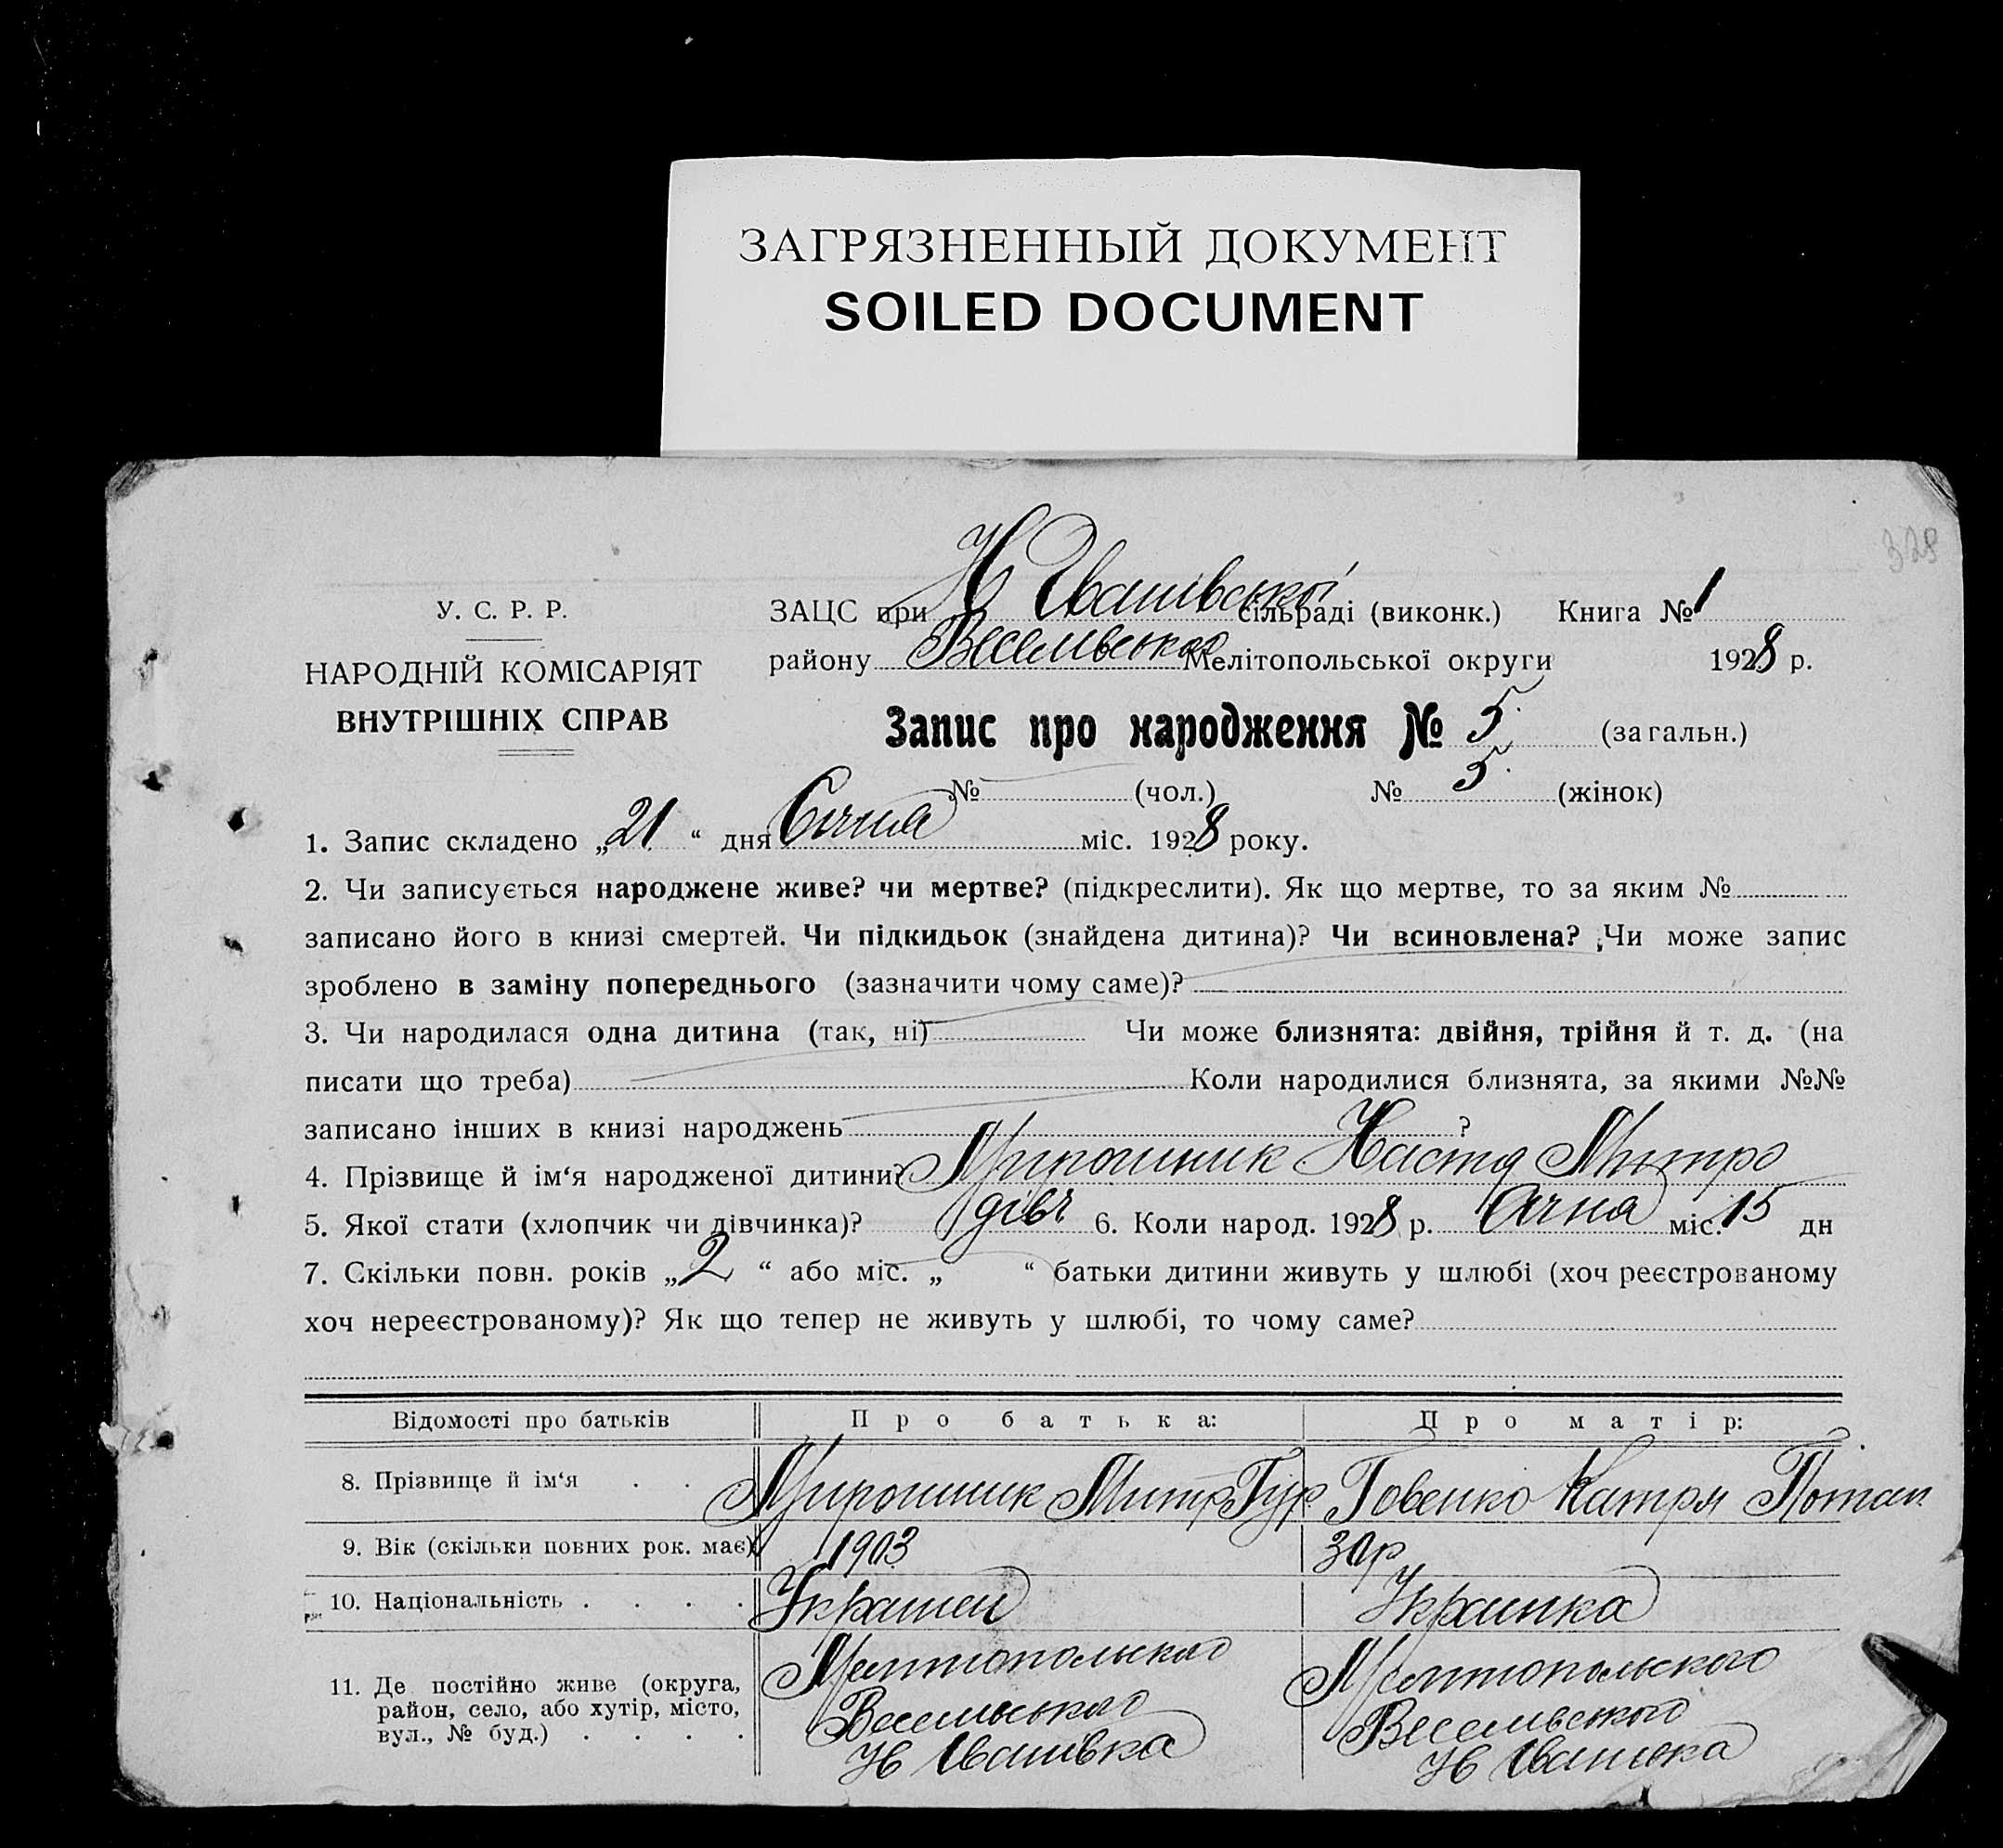 ЗАГРЯЗНЕННЫЙ ДОКУМЕНТ
SOILED DOCUMENT
328
У. С. Р. Р.
НАРОДНІЙ КОМІСАРІЯТ
ВНУТРІШНІХ СПРАВ
ЗАЦС при Н Іванівської сільраді (виконк.) Книга № 1
району Веселівського Мелітопольської округи 1928 р.
Запис про народження № 5 (загальн.)
№ (чол.) № 5 (жінок)
1. Запис складено „21“ дня Січня міс. 1928 року.
2. Чи записується народжене живе? чи мертве? (підкреслити). Як що мертве, то за яким №
записано його в книзі смертей. Чи підкидьок (знайдена дитина)? Чи всиновлена? Чи може запис
зроблено в заміну попереднього (зазначити чому саме)?
3. Чи народилася одна дитина (так, ні) Чи може близнята: двійня, трійня й т. д. (на
писати що треба) Коли народилися близнята, за якими №№
записано інших в книзі народжень ?
4. Прізвище й ім‘я народженої дитини? Мирошник Настя Митро
5. Якої стати (хлопчик чи дівчинка)? дівч 6. Коли народ. 1928 р. Січна міс. 15 дн
7. Скільки повн. років „2“ або міс. „ “ батьки дитини живуть у шлюбі (хоч реєстрованому
хоч нереєстрованому)? Як що тепер не живуть у шлюбі, то чому саме?
Відомості про батьків Про батька: Про матір:
8. Прізвище й ім‘я . . Мирошник Митр Гур Говенко Катря Потап
9. Вік (скільки повних рок. має) 1903 30р
10. Національність . . . . Украінец Украинка
11. Де постійно живе (округа, район, село, або хутір, місто, вул., № буд.) . . . .
Мелітопольского Мелітопольского
Веселівського Веселівського
Н Іванівка Н Іванівка